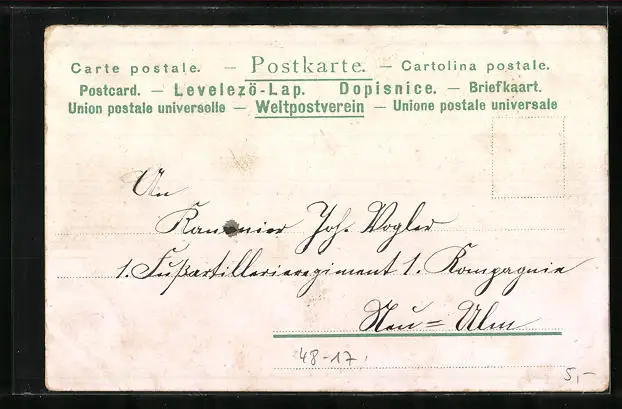 Carte postale. — Postkarte. — Cartolina postale.
Postcard. — Levelező-Lap. Dopisnice. — Briefkaart.
Union postale universelle — Weltpostverein — Unione postale universale
An
Kanonier Joh. Vogler
1. Fußartillerieregiment 1. Kompagnie
Neu=Ulm
48-17.
5,-